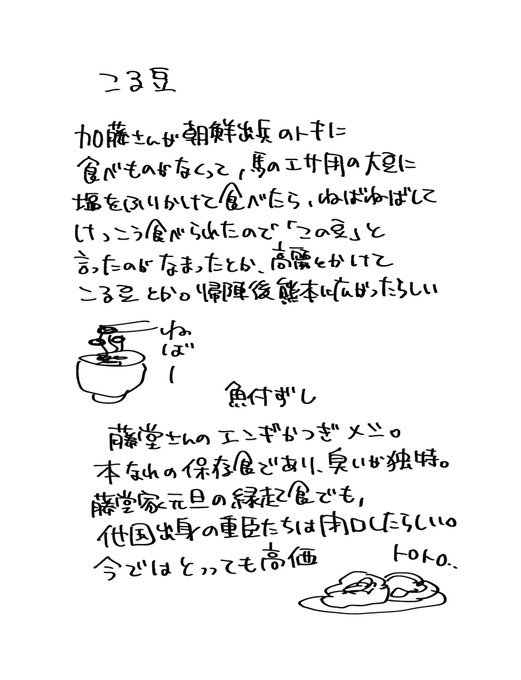 こる豆
加藤さんが朝鮮出兵のトキに
食べものがなくって、馬のエサ用の大豆に
塩をふりかけて食べたら、ねばねばして
けっこう食べられたので「この豆」と
言ったのがなまったとか、高麗とかけて
こる豆とか。帰陣後熊本に広がったらしい
ねばー
魚付ずし
藤堂さんのエンギかつぎメシ。
本なれの保存食であり、臭いが独特。
藤堂家元旦の縁起食でも、
他国出身の重臣たちは閉口したらしい。
今ではとっても高価
トロトロ..